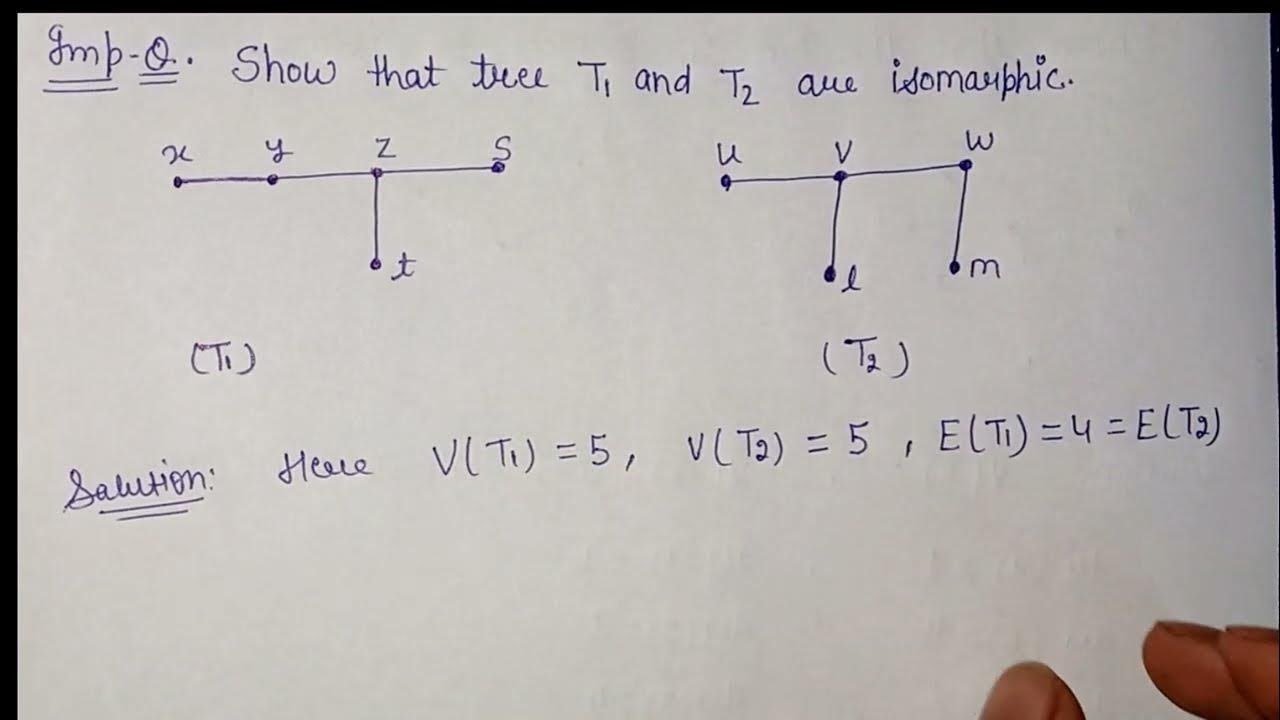 Imp-Q. Show that tree T₁ and T₂ are isomarphic.
x y z S
u v w
t
l m
(T₁)
(T₂)
Solution: Here V(T₁) = 5, V(T₂) = 5, E(T₁) = 4 = E(T₂)